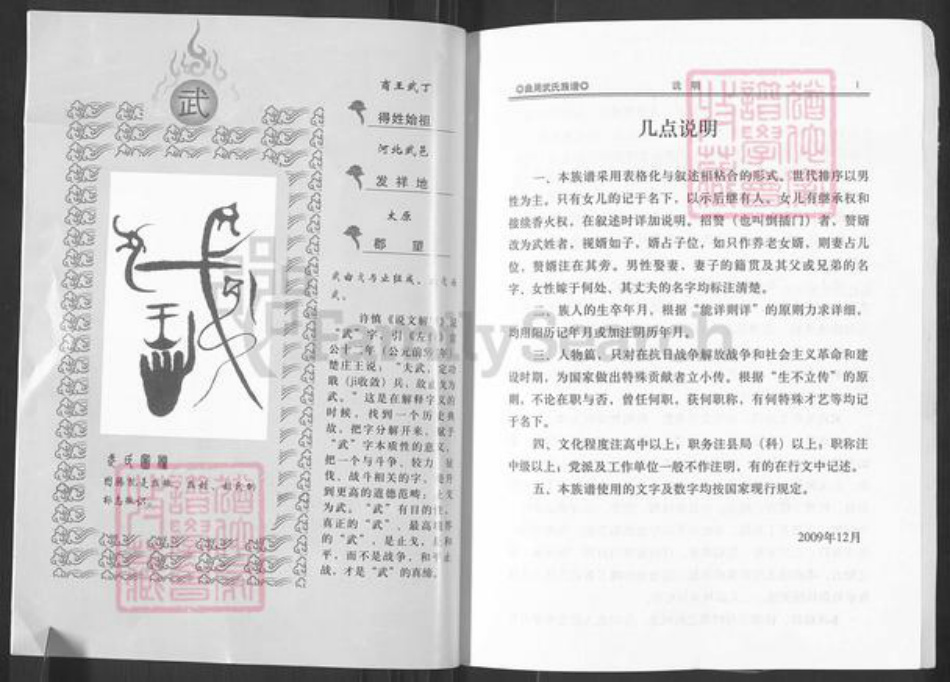 武
商王武丁
得姓始祖
河北武邑
发祥地
太原
郡望
许慎《说文解
"武"字，引《左
公十二年（公元前
楚庄王说："夫武，定功
戢（ji收敛）兵，故止戈为
武。"这是在解释字义的
时候，找到一个历史典
故，把字分解开来，赋予
"武"字本质性的意义，
把一个与斗争、较力、征
伐、战斗相关的字，提升
到更高的道德范畴：止戈
为武。"武"有目的性，
真正的"武"、最高境界
的"武"，是止戈，是和
平，而不是战争，和平止
战，才是"武"的真缔。
武氏图腾
曲周武氏族谱
说明
1
几点说明
一、本族谱采用表格化与叙述相粘合的形式。世代排序以男
性为主。只有女儿的记于名下，以示后继有人。女儿有继承权和
接续香火权，在叙述时详加说明。招赘（也叫倒插门）者，赘婿
改为武姓者，视婿如子，婿占子位，如只作养老女婿，则妻占儿
位，赘婿注在其旁。男性娶妻，妻子的籍贯及其父或兄弟的名
字、女性嫁于何处、其丈夫的名字均标注清楚。
二、族人的生卒年月，根据"能详则详"的原则力求详细，
均用阳历记年月或加注阴历年月。
三、人物篇，只对在抗日战争解放战争和社会主义革命和建
设时期，为国家做出特殊贡献者立小传。根据"生不立传"的原
则，不论在职与否，曾任何职，获何职称，有何特殊才艺等均记
于名下。
四、文化程度注高中以上；职务注县局（科）以上，职称注
中级以上；党派及工作单位一般不作注明，有的在行文中记述。
五、本族谱使用的文字及数字均按国家现行规定。
2009年12月
FamilySearch